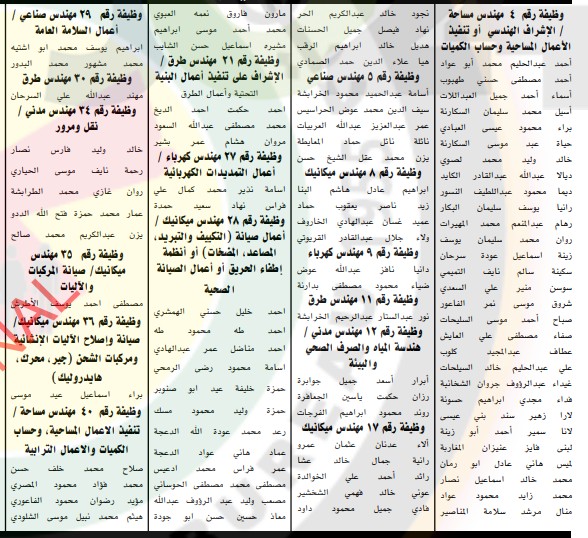 وظيفة رقم ٤ مهندس مساحة
/ الإشراف الهندسي أو تنفيذ
الأعمال المساحية وحساب الكميات
أحمد عبدالحليم محمد أبو عواد
أحمد مصطفى حسني طهبوب
أسماء أحمد جميل العبداللات
أسيل محمد سليمان السكارنة
براء محمود عيسى العبادي
حياة عيد موسى السكارنة
خالد وليد محمد لصوي
ديالا عبدالله عبدالقادر الكايد
ديما محمود عبداللطيف النسور
رانيا يوسف سليمان البكار
رهام عبدالمنعم محمد المهيرات
روان محمد سليمان يوسف
زينة اسماعيل عودة سرحان
سكينة سالم نايف التميمي
سوسن منير علي السعدي
شروق موسى نمر الفاعور
صباح أحمد موسى السليحات
صفاء مصطفى علي العايش
عطاف عبدالمجيد كلوب
علي عبدالحليم خالد السليحات
غيداء عبدالرؤوف جروان الشخانبة
فداء مجدي ابراهيم حسونة
لارا زهير سند بني عيسى
لانا سمير أحمد أبو زينة
لبنى فايز عنيزان المغاربة
لميس هاني عادل ابو رمان
محمد خالد اسماعيل نصار
محمد زايد محمود عواد
منال مرشد سلامة المناصير
نجود خالد عبدالكريم الحر
نهاد فيصل جميل الحسنات
هديل خالد ابراهيم الرقب
هيا علاء الدين حمد الصمادي
وظيفة رقم ٥ مهندس صناعي
أسامة عبدالحميد محمود الخرابشة
سيف الدين محمد عوض الحراسيس
عمر عبدالعزيز عبدالله العربيات
نائلة نائل حماد المعايطة
يزن محمد عقل الشيخ حسن
وظيفة رقم ٨ مهندس ميكانيك
ابراهيم عادل هاشم البنا
زيد ناصر يعقوب حماد
عميد غسان عبدالهادي الخاروف
ولاء جلال عبدالقادر القريوتي
وظيفة رقم ٩ مهندس كهرباء
دانيا نافز عبدالله عوض
ضياء محمود مصطفى بدارنة
وظيفة رقم ١١ مهندس طرق
نور عبدالستار عبدالرحيم الخرابشة
وظيفة رقم ١٢ مهندس مدني /
هندسة المياه والصرف الصحي
والبيئة
أبرار أسعد جميل جوابرة
رزان حكمت ياسين الجمافرة
روند محمود ابراهيم الفرجات
وظيفة رقم ١٧ مهندس ميكانيك
آلاء عدنان عثمان عمرو
رانية جمال خالد عشا
رائد أحمد علي الخوالدة
عوني خالد فهمي الخشخشير
فادي جميل محمود داود
مارون فاروق نعمه العبوي
محمد أحمد موسى ابراهيم
مشيره اسماعيل حسن الشايب
وظيفة رقم ٢١ مهندس طرق /
الإشراف على تنفيذ أعمال البنية
التحتية وأعمال الطرق
احمد حكمت احمد الديخ
محمد مصطفى عبدالله السعود
مروان هشام عمر بشير
وظيفة رقم ٢٧ مهندس كهرباء /
أعمال التمديدات الكهربائية
اسامة نذير محمد كمال علي
فراس نهاد سعيد حمدة
وظيفة رقم ٢٨ مهندس ميكانيك /
أعمال صيانة (التكييف والتبريد،
المصاعد، المضخات) أو أنظمة
إطفاء الحريق أو أعمال الصيانة
الصحية
احمد خليل حسني الهمشري
احمد طه محمود طه
احمد مناضل عمر عبدالهادي
اسامة محمود رضى الرمحي
حمزة خليفة عيد ابو صنوبر
حمزة وليد محمود مسك
رعد محمد عودة الله الدعجة
عماد هاني عواد الدعجة
عمر فراس محمد ادعيس
مصطفى محمد مصطفى الحوساني
مصعب وليد عبد الرؤوف عبدالله
معاذ حسين حسن ابو جودة
وظيفة رقم ٢٩ مهندس صناعي /
أعمال السلامة العامة
ابراهيم يوسف محمد ابو اشتيه
محمد مشهور محمد البدور
وظيفة رقم ٣٠ مهندس طرق
مهند عبدالله علي السرحان
وظيفة رقم ٣٤ مهندس مدني /
نقل ومرور
خالد وليد فارس نصار
رحمة نايف موسى الحياري
روان غازي محمد الطرابشة
عمار محمد حمزة فتح الله الددو
يزن عبدالكريم محمد صالح
وظيفة رقم ٣٥ مهندس
ميكانيك/ صيانة المركبات
والآليات
مصطفى احمد يوسف الأطرش
وظيفة رقم ٣٦ مهندس ميكانيك/
صيانة وإصلاح الآليات الإنشائية
ومركبات الشحن (جير، محرك،
هايدروليك)
براء اسماعيل عيد موسى
وظيفة رقم ٤٠ مهندس مساحة /
تنفيذ الاعمال المساحية، وحساب
الكميات والاعمال الترابية
صلاح محمد خلف حسن
محمد فؤاد محمود المصري
مؤيد رضوان محمود الفاعوري
هيثم محمد نبيل موسى الشلودي